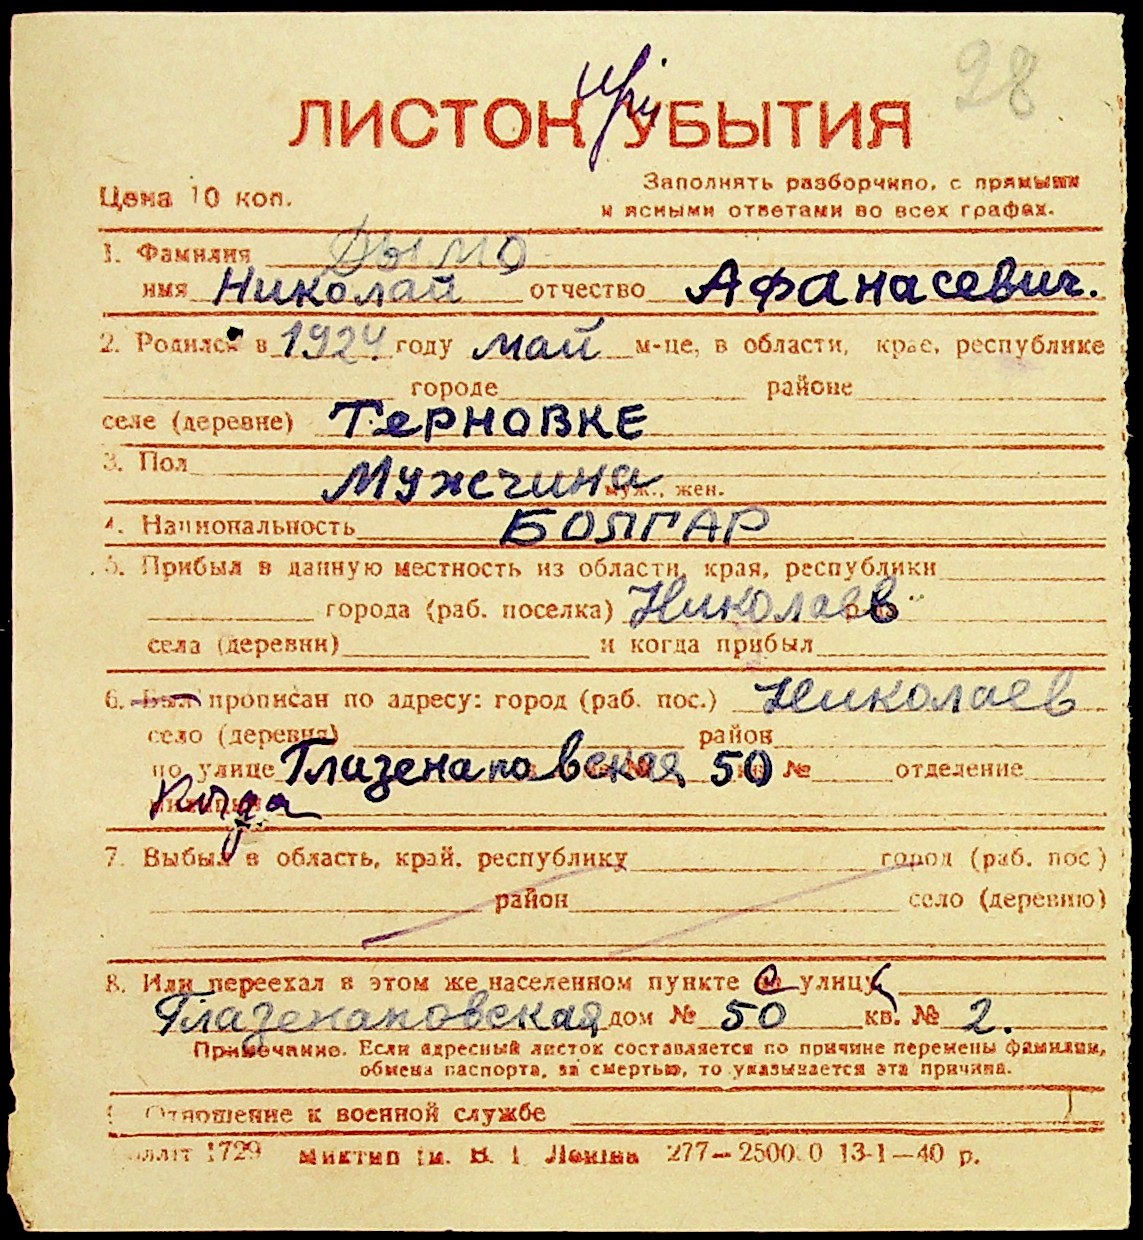 28
ЛИСТОК при УБЫТИЯ
Цена 10 коп.
Заполнять разборчиво, с прямыми
и ясными ответами во всех графах.
1. Фамилия Дымо
имя Николай отчество Афанасевич.
2. Родился в 1924 году май м-це, в области, крае, республике
городе районе
селе (деревне) Терновке
3. Пол Мужчина муж., жен.
4. Национальность БОЛГАР
5. Прибыл в данную местность из области, края, республики
города (раб. поселка) Николаев
села (деревни) и когда прибыл
6. Был прописан по адресу: город (раб. пос.) Николаев
село (деревня) район
по улице Глазенаповская 50 № отделение
Когда
7. Выбыл в область, край, республику город (раб. пос.)
район село (деревню)
8. Или переехал в этом же населенном пункте с улицы
Глазенаповская дом № 50 кв. № 2.
Примечание. Если адресный листок составляется по причине перемены фамилии,
обмена паспорта, за смертью, то указывается эта причина.
Отношение к военной службе
1729 Миктип ім. В. І. Леніна 277—25000 13-1—40 р.